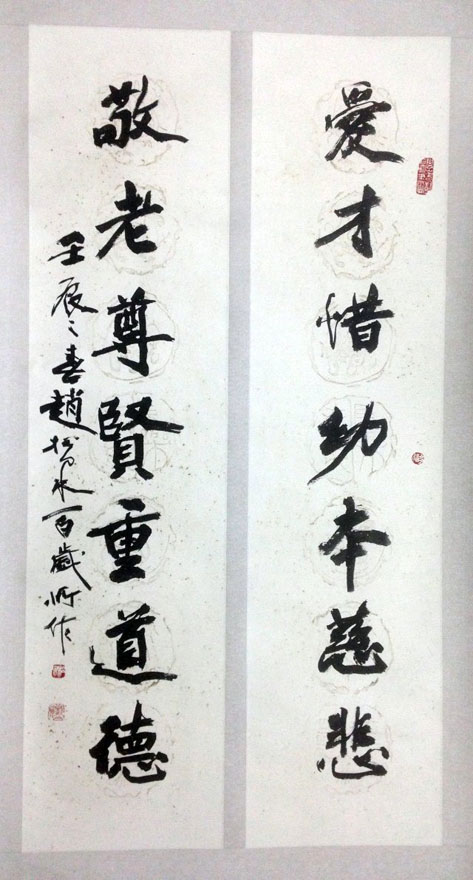 愛才惜幼本慈悲
敬老尊賢重道德
壬辰之趙松百歲所作